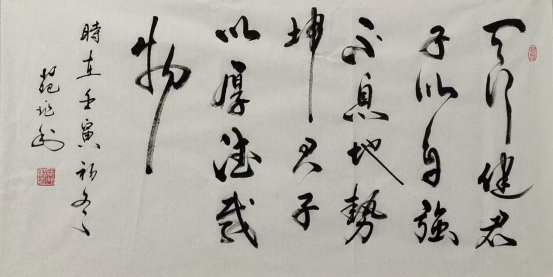 天行健君
子以自強
不息地勢
坤君子
以厚德載
物
時在壬寅初冬